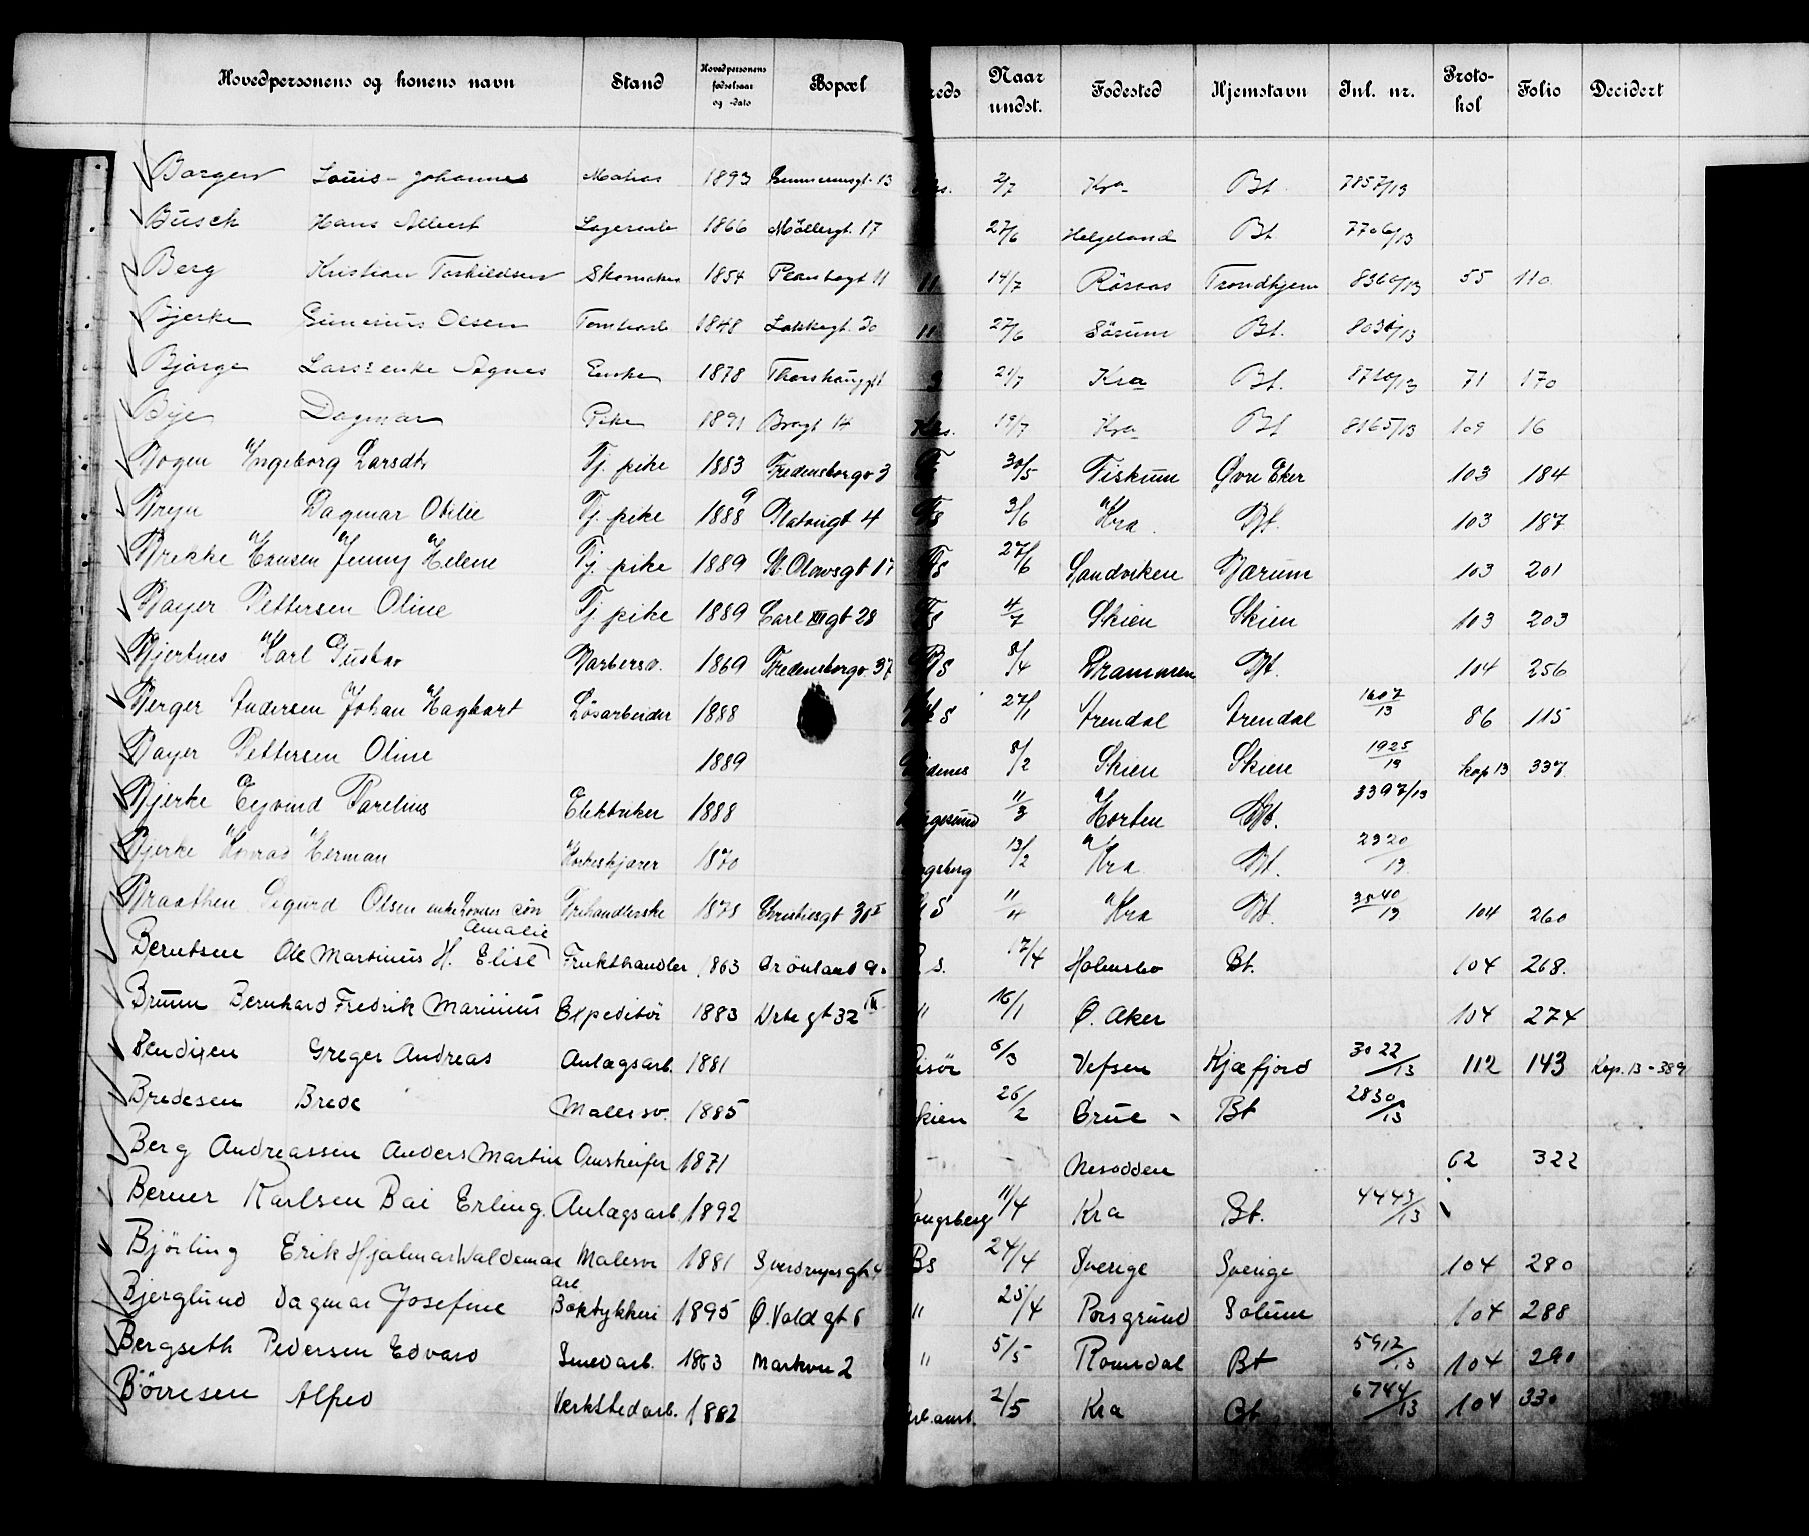 Hovedpersonens og konens navn Stand Hovedpersonens fødselsaar og -dato Bopæl reds Naar undst. Fødested Hjemstavn Inl. nr. Protokol Folio Decidert
Borgen Louis Johannes 1893 13 2/7 Kra Bt. 7857/13
Busch Hans Albert Lagerarb 1866 Möllergt. 17 27/6 Helgeland Bt. 7706/13
Berg Kristian Torkildsen Skomaker 1854 11 11 14/7 Röraas Trondhjem 8360/13 55 110
Bjerke Olsen Tomtearb 1848 Lakkegt. 20 11 27/6 Sörum Bt. 13
Bjørge Lars enke Agnes Enke 1878 2 21/7 Kra Bt. 8720/13 71 170
Bye Dagmar Pike 1891 Bragt 14 Ks. 19/7 Kra Bt 8165/13 109 16
Bogen Ingeborg Larsdtr Tj. pike 1883 Fredensborgv 3 Fs 30/5 Fiskum Øvre Eker 103 184
Bryn Dagmar Otilie Tj. pike 1888 9 Platougt 4 Fs 3/6 Kra. Bt. 103 187
Brekke Hansen Jenny Helene Tj. pike 1889 St. Olavsgt 17 Fs 27/6 Sandviken Bærum 103 201
Bayer Pettersen Oline Tj. pike 1889 Carl XII gt 28 Fs 4/7 Skien Skien 103 203
Bjertnes Karl Gustav Barbersv. 1869 Fredensborgv. 37 Bs 8/4 Drammen Bt. 104 256
Berger Andersen Johan Hagbart Lösarbeider 1888 S 27/1 Arendal Arendal 1607/13 86 115
Bayer Pettersen Oline 1889 8/2 Skien Skien 1925/13 Kop 13 337
Bjerke Eyvind Parelius Elektriker 1888 11/3 Horten Bt. 3397/13
Bjerke Konrad Herman 1870 ngsberg 13/2 Kra Bt. 2320/13
Braathen Sigurd Olsen enke søn Frihandlerske 1875 Christiesgt 30 I S 11/4 Kra Bt. 3540/13 104 260
Amalie
Berntsen Ole Martinius H. Elise Frukthandler 1863 Grönland 9. s. 17/4 Holmsbo Bt. 104 268.
Bruun Bernhard Fredrik Marinius Expeditör 1883 Urtegt 32 IV " 16/1 Ø. Aker 104 274
Bendixen Greger Andreas Anlægsarb. 1881 isör 6/3 Vefsen Kjæfjord 3022/13 112 143 Kop. 13 - 389
Bredesen Brede Malersv. 1885 kien 26/2 Grue Bt 2830/13
Berg Andreassen Anders Martin 1871 - - Nesodden 62 322
Berner Karlsen Bai Erling. Anlægsarb. 1892 ongsberg 11/4 Kra Bt. 4443/13
Björling Erik Hjalmar Waldemar Malersv 1881 Sverdrupsgt 4 Bs 24/4 Sverige Sverige 104 280
Bjerglund Dagmar Josefine arb Boktykkeri 1895 Ø. Voldgt 6 " 25/4 Porsgrund Solum 104 288
Bergseth Pedersen Edvard Smedarb. 1863 Markvn 2 " 5/5 Romsdal Bt 5912/13 104 290
Börresen Alfred Verkstedarb. 1882 arb. anst. 2/5 Kra Bt 6744/13 104 330